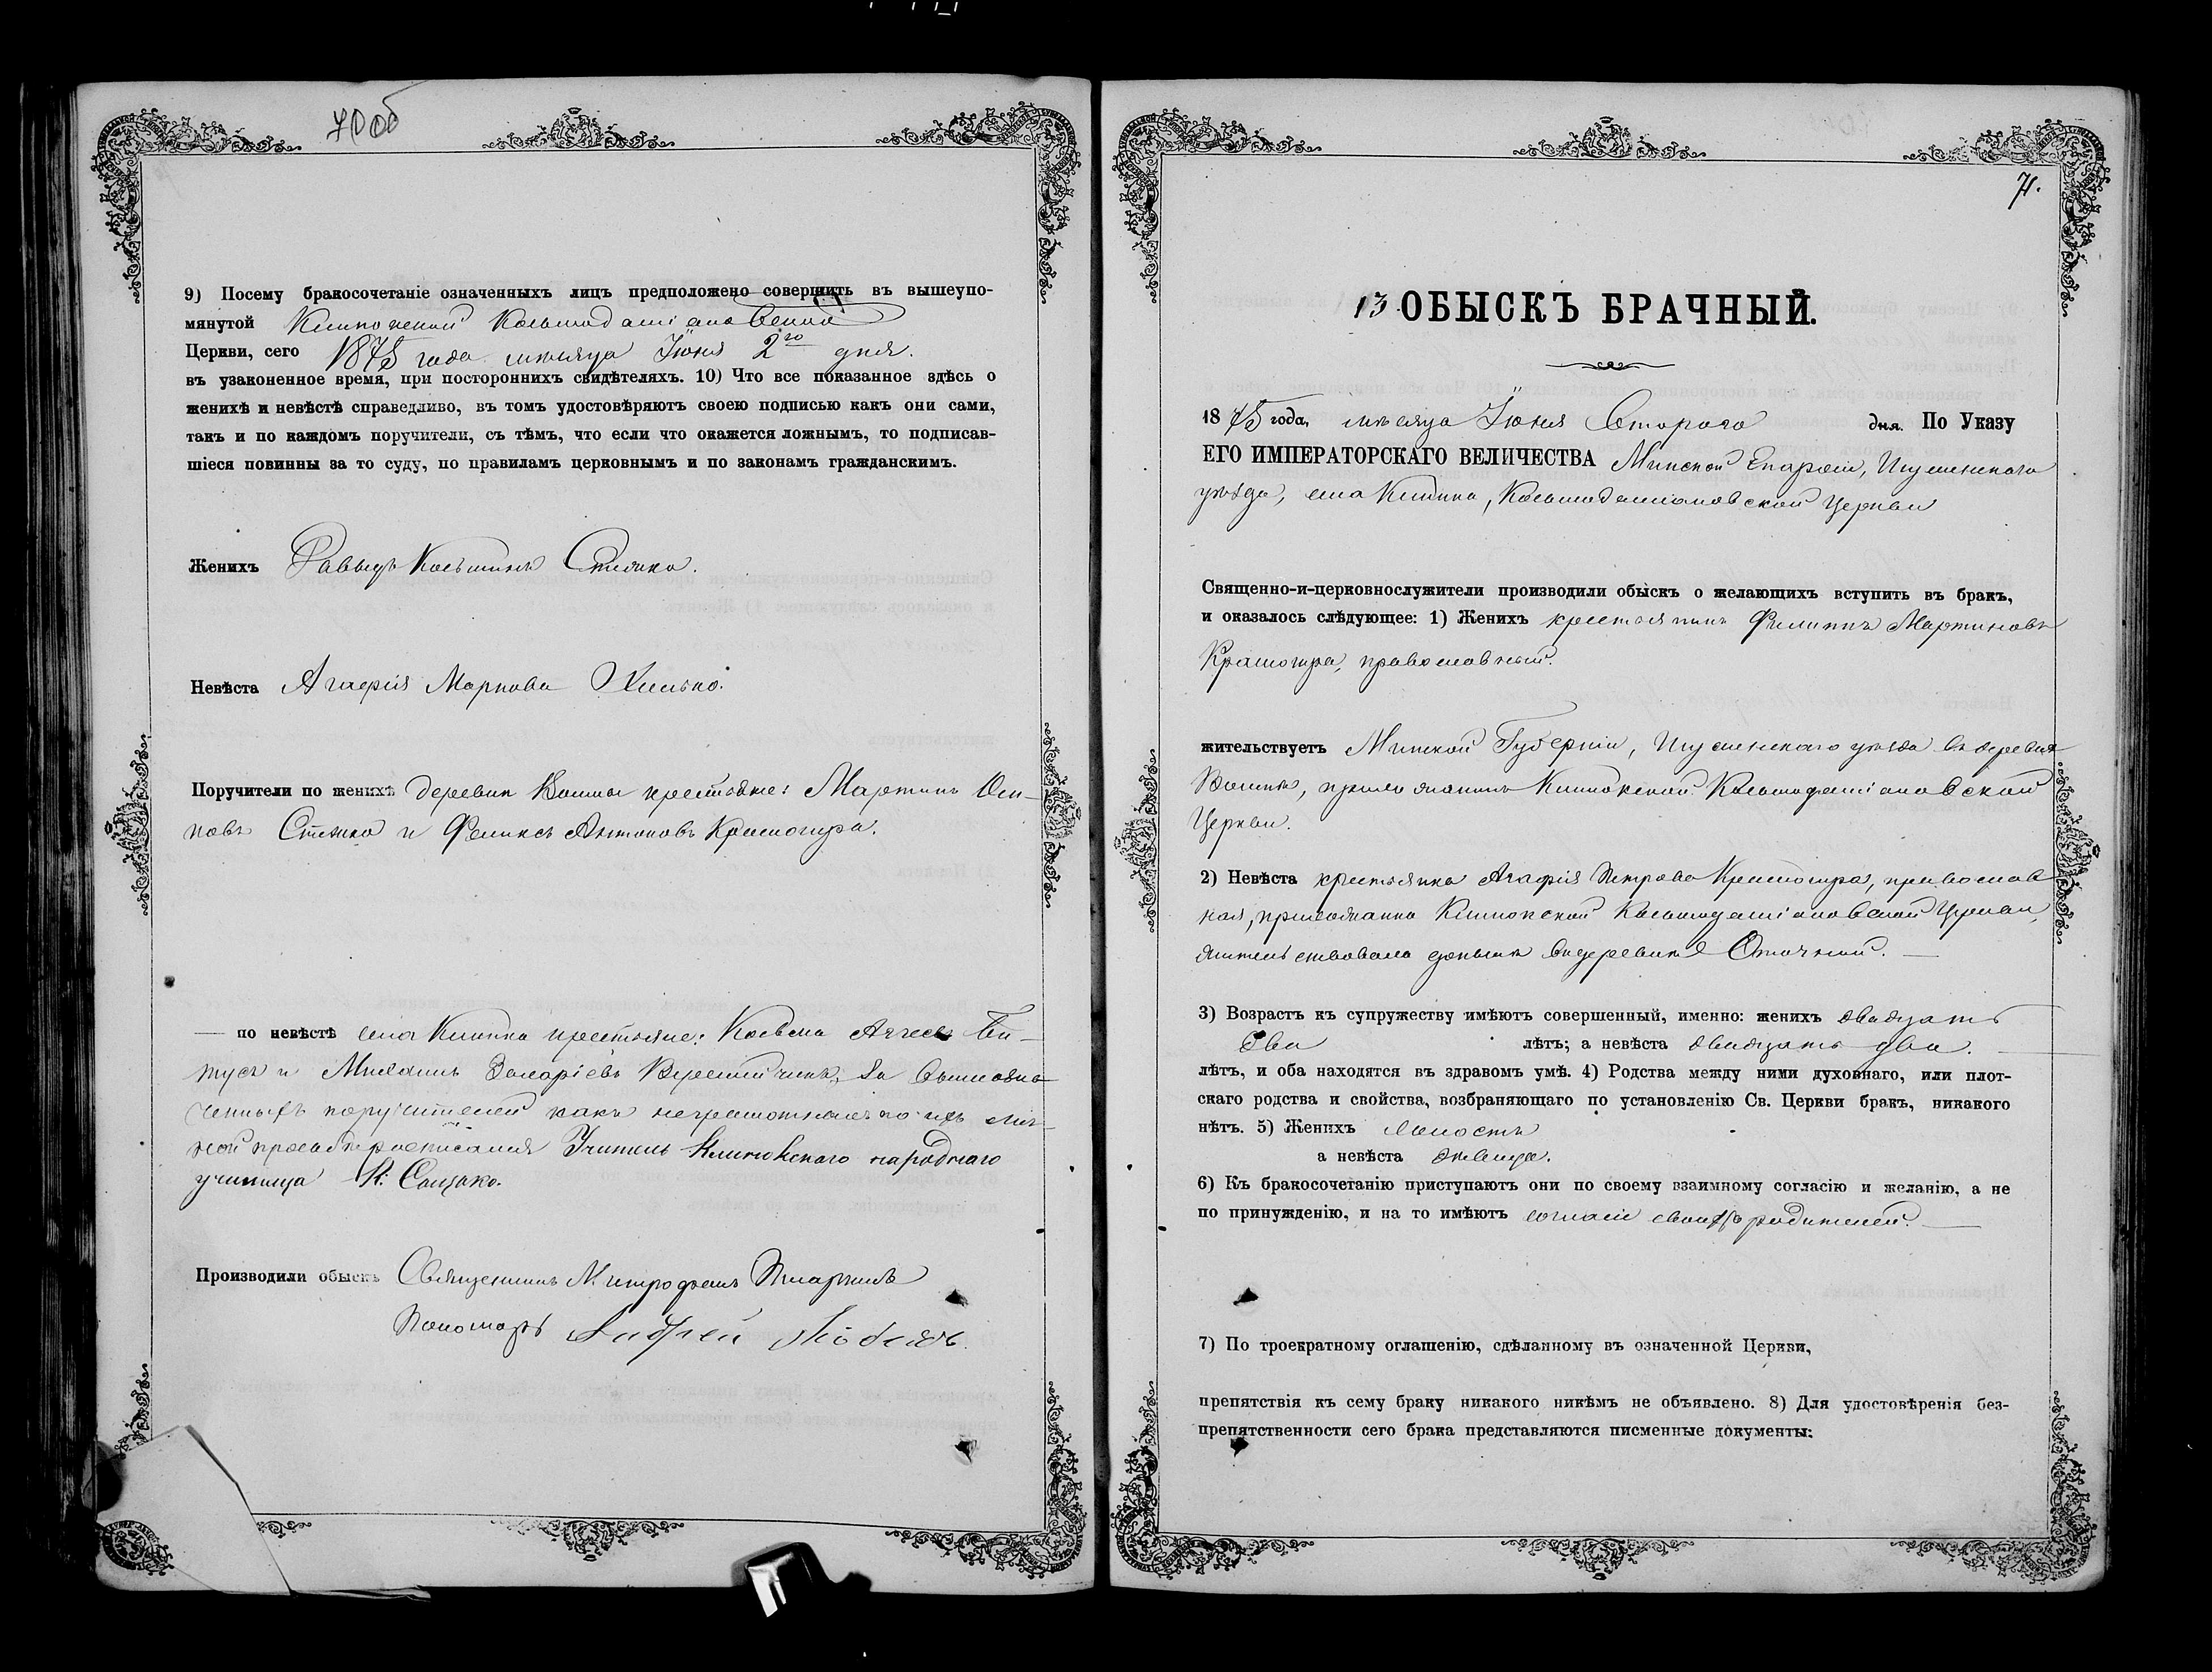 70 об
9) Посему бракосочетаніе означенныхъ лицъ предположено совершить въ вышеупо-
мянутой Клинокской Косьмодаміановской
Церкви, сего 1875 года мѣсяца Іюня 2го дня.
въ узаконенное время, при постороннихъ свидѣтеляхъ. 10) Что все показанное здѣсь о
женихѣ и невѣстѣ справедливо, въ томъ удостовѣряютъ своею подписью какъ они сами,
такъ и по каждомъ поручители, съ тѣмъ, что если что окажется ложнымъ, то подписав-
шіеся повинны за то суду, по правиламъ церковнымъ и по законамъ гражданскимъ.
Женихъ Косьминъ Стяжко.
Невѣста Агафія Маркова
Поручители по женихѣ деревни крестьяне: Мартинъ Оси-
повъ Стяжко и Феликсъ Антоновъ Красногира.
— по невѣстѣ села Клинка крестьяне: Косьма
и Михаилъ Захаріевъ За вышеозна-
ченныхъ поручителей какъ неграмотныхъ по ихъ лич-
ной просьбѣ росписался Учитель Клинокскаго народнаго
училища
Производили обыскъ Священникъ Митрофанъ
Пономарь Андрей
71.
13 ОБЫСКЪ БРАЧНЫЙ.
1875 года, мѣсяца Іюня Второго дня. По Указу
ЕГО ИМПЕРАТОРСКАГО ВЕЛИЧЕСТВА Минской Епархіи, Игуменскаго
уѣзда, села Клинка, Косьмодаміановской Церкви
Священно-и-церковнослужители производили обыскъ о желающихъ вступить въ бракъ,
и оказалось слѣдующее: 1) Женихъ крестьянинъ Филиппъ Мартиновъ
Красногира, православный.
жительствуетъ Минской Губерніи, Игуменскаго уѣзда въ деревнѣ
прихожанинъ Клинокской Косьмодаміановской
Церкви.
2) Невѣста крестьянка Агафія Петрова Красногира, православ
ная, прихожанка Клинокской Косьмодаміановской Церкви,
жительствовала донынѣ въ деревнѣ
3) Возрастъ къ супружеству имѣютъ совершенный, именно: женихъ двадцать
два лѣтъ; а невѣста двадцать два.
лѣтъ, и оба находятся въ здравомъ умѣ. 4) Родства между ними духовнаго, или плот-
скаго родства и свойства, возбраняющаго по установленію Св. Церкви бракъ, никакого
нѣтъ. 5) Женихъ холостъ
а невѣста дѣвица.
6) Къ бракосочетанію приступаютъ они по своему взаимному согласію и желанію, а не
по принужденію, и на то имѣютъ согласіе своихъ родителей.
7) По троекратному оглашенію, сдѣланному въ означенной Церкви,
препятствія къ сему браку никакого никѣмъ не объявлено. 8) Для удостовѣренія без-
препятственности сего брака представляются писменные документы: